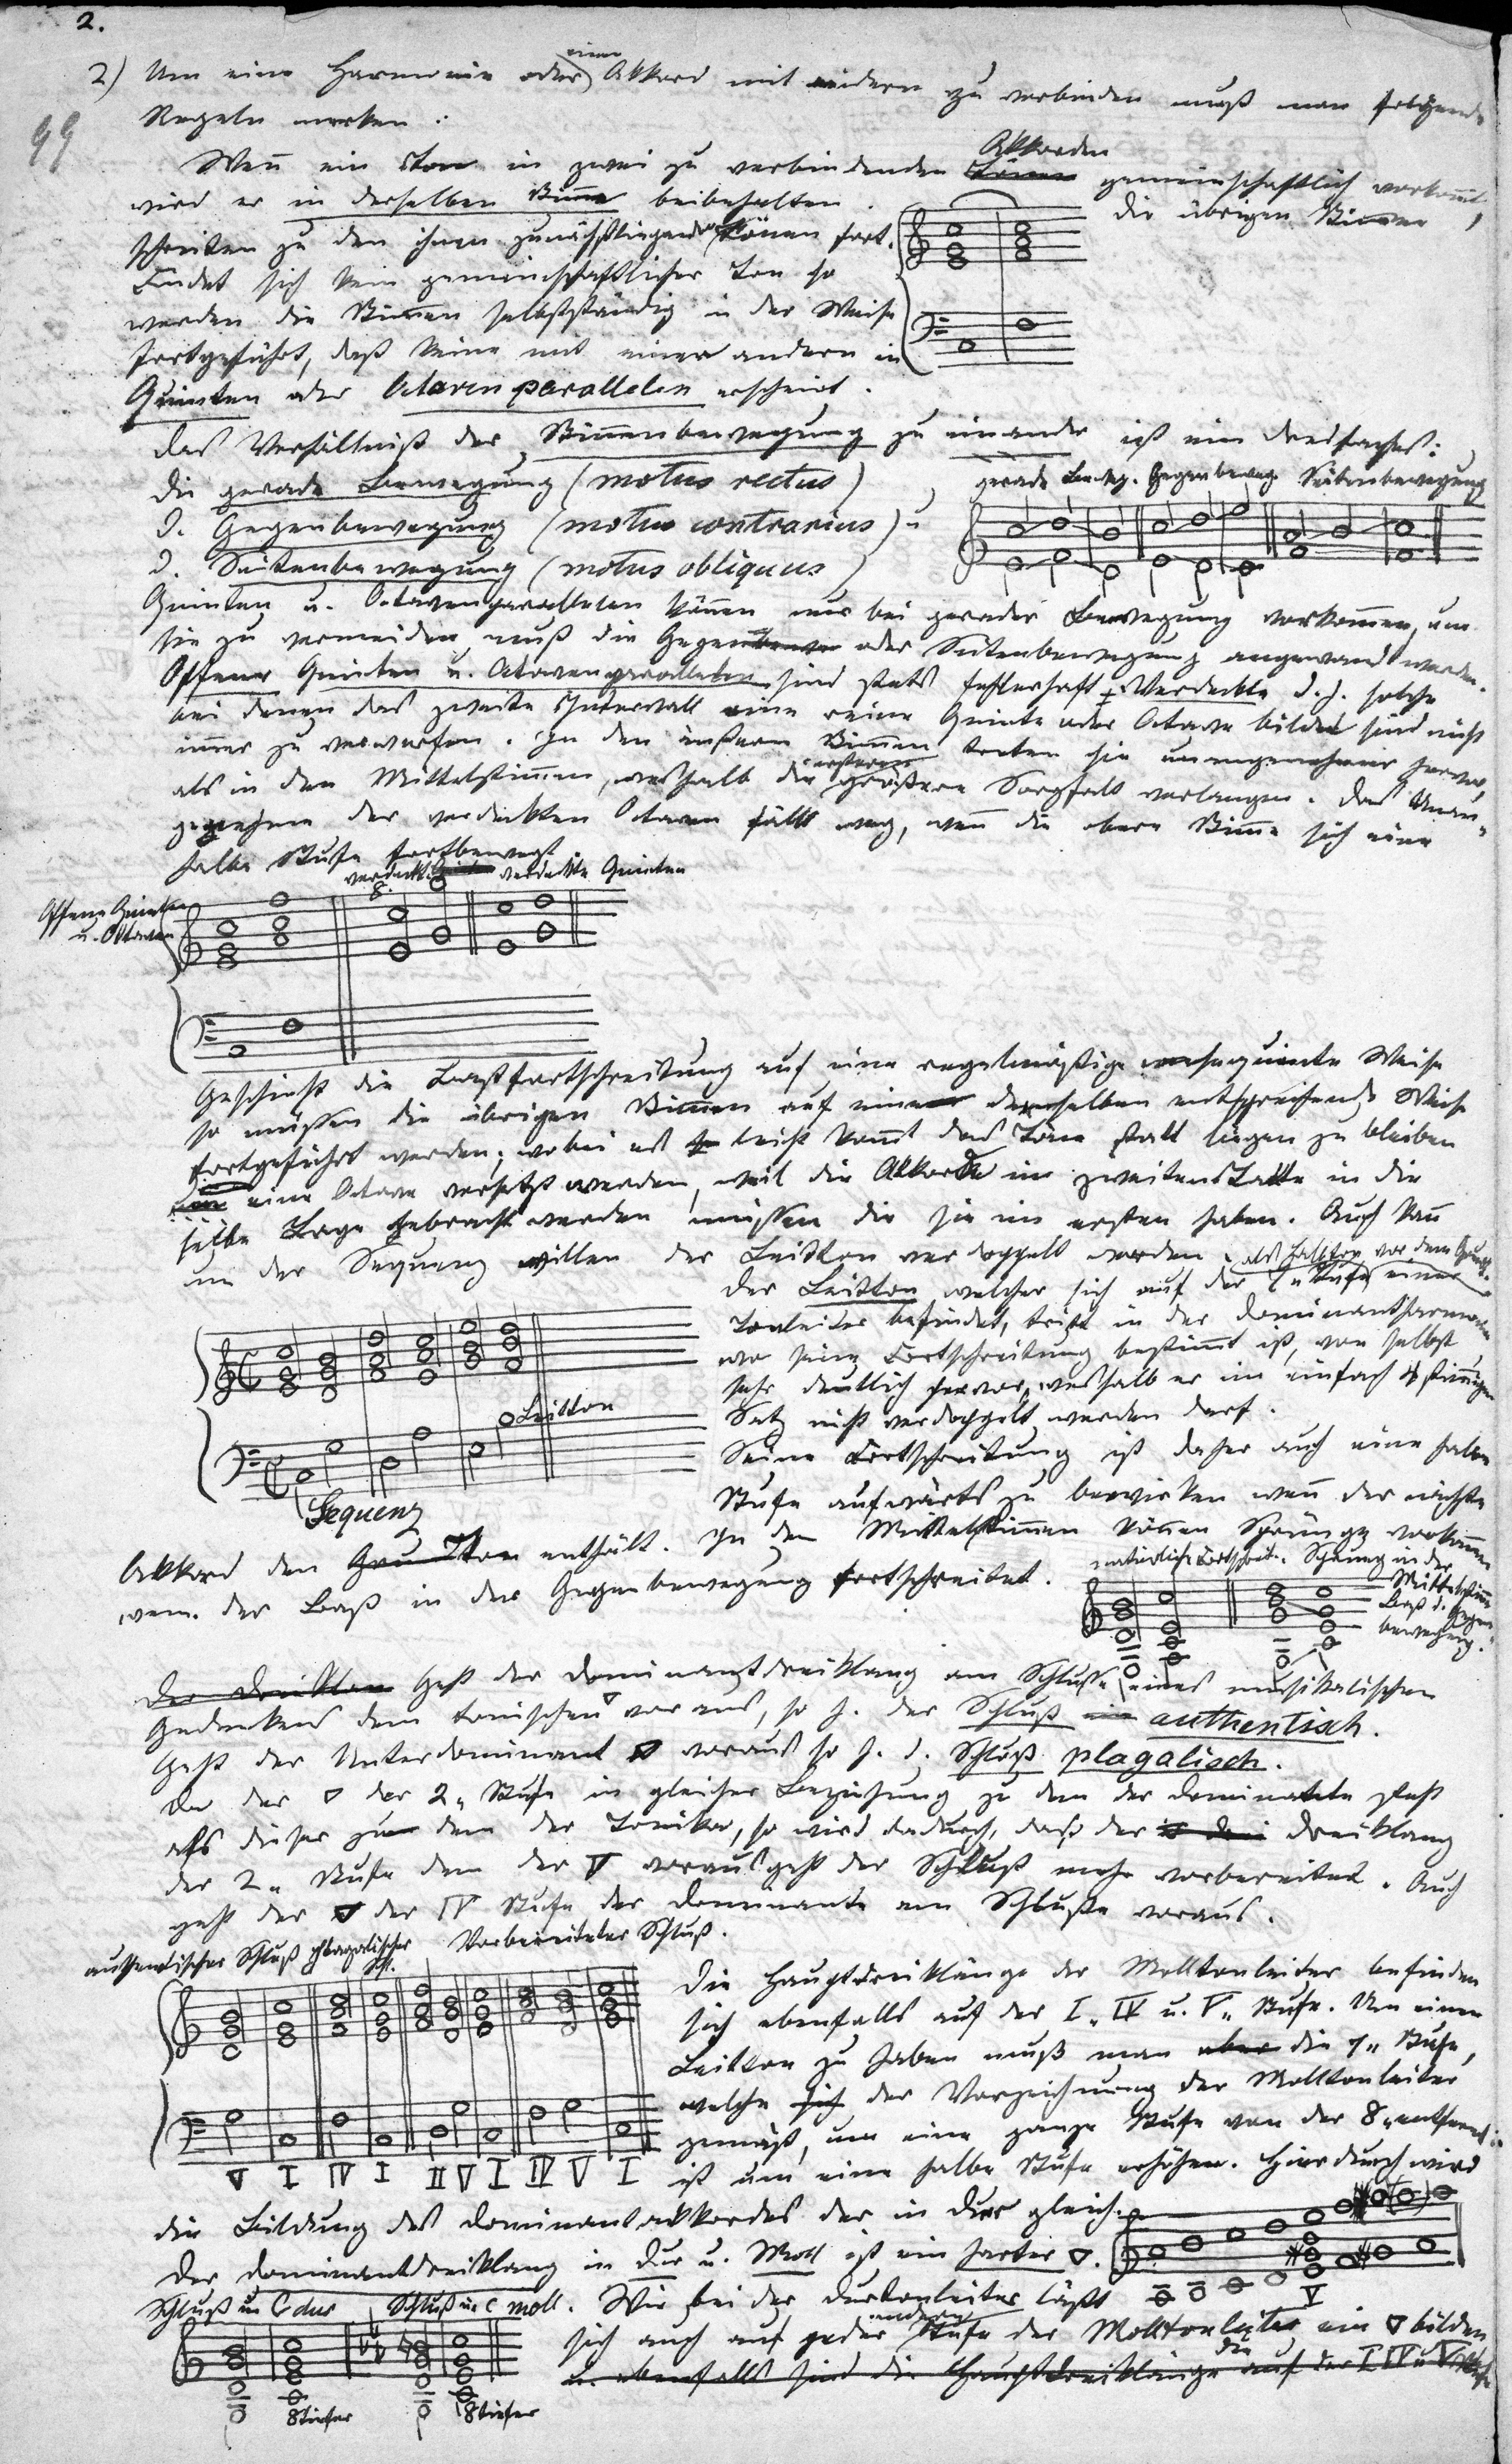 2.
2) Um eine Harmonie oder einen Akkord mit andern zu verbinden muß man folgende
99
Regeln merken:
Wen̄ ein Ton in zwei zu verbindenden Akkorden gemeinschaftlich vorkom̄t,
wird er in derselben Stim̄e beibehalten. die übrigen Stim̄en
schreiten zu den ihnen zunächstliegenden Tönen fort.
Findet sich kein gemeinschaftlicher Ton so
werden die Stim̄en selbstständig in der Weise
fortgeführt, daß keine mit einer andern in
Quinten oder Octavenparallelen erscheint.
Das Verhältniß der Stim̄enbewegung zu einander ist ein dreifaches:
die gerade Bewegung (motus rectus),
gerade Beweg. Gegenbeweg. Seitenbewegung
d. Gegenbewegung (motus contrarius) u
d. Seitenbewegung (motus obliquus)
Quinten u. Octavenparallelen kön̄en nur bei gerader Bewegung vorkom̄en, um
sie zu vermeiden muß die Gegen oder Seitenbewegung angewand werden.
Offene Quinten u. Octavenparallelen sind stets fehlerhaft. Verdeckte d.h. solche
bei denen das zweite Intervall eine reine Quinte oder Octave bildet sind nicht
im̄er zu verwerfen. In den äußern Stim̄en treten sie unangenehmer hervor,
als in den Mittelstim̄en, weshalb die ersteren größere Sorgfalt verlangen. Das Unan-
genehme der verdeckten Octaven fällt weg, wen̄ die obere Stim̄e sich eine
halbe Stufe fortbewegt.
verdeckte 8. verdeckte Quinten
Offene Quinten
u. Octaven
Geschieht die Baßfortschreitung auf eine regelmäßige consequente Weise
so müssen die übrigen Stim̄en auf eine derselben entsprechende Weise
fortgeführt werden; wobei es leicht kom̄t das Töne statt liegen zu bleiben
eine Octave versetzt werden, weil die Akkorde im zweiten Takte in die
selbe Lage gebracht werden müssen die sie im ersten haben. Auch kan̄
um der Sequenz willen der Leitton verdoppelt werden.
als Halbton vor dem Grundt.
Der Leitton welcher sich auf der 7" Stufe einer
Tonleiter befindet, tritt in der Dominantharmonie
wo seine Fortschreitung bestim̄t ist, von selbst
sehr deutlich hervor, weshalb er im einfach 4stim̄igen
Leitton
Satz nicht verdoppelt werden darf.
Seine Fortschreitung ist daher auch eine halbe
Stufe aufwärts zu bewirken wen̄ der nächste
Sequenz
Akkord den Ton enthält. In den Mittelstim̄en kön̄en Sprünge vorkom̄en
wen̄ der Baß in der Gegenbewegung fortschreitet.
natürliche Fortschreit. Sprung in der
Mittelstim̄e
Baß d. Gegen-
bewegung.
Geht der Dominantdreiklang am Schlusse eines musikalischen
Gedankens dem tonischen ▽ voraus, so h. der Schluß authentisch.
Geht der Unterdominant ▽ voraus so h. d. Schluß plagalisch.
Da der ▽ der 2" Stufe in gleicher Beziehung zu dem der Dominante steht
als dieser zu dem der Tonika, so wird dadurch, daß der Dreiklang
der 2" Stufe dem der V vorausgeht der Schluß mehr vorbereitet. Auch
geht der ▽ der IV Stufe der Dominante am Schluße voraus.
authentischer Schluß plagalischer Schl. Vorbereiteter Schluß.
Die Hauptdreiklänge der Molltonleiter befinden
sich ebenfalls auf der I" IV u. V" Stufe. Um einen
Leitton zu haben muß man die 7" Stufe,
welche der Vorzeichnung der Molltonleiter
gemäß, um eine ganze Stufe von der 8" entfernt
V I IV I II V I IV V I
ist um eine halbe Stufe erhöhen. Hierdurch wird
die Bildung des Dominantakkordes der in Dur gleich.
Der Dominantdreiklang in Dur u. Moll ist ein harter ▽.
V
Schluß in C dur Schluß in C moll. Wie bei der Durtonleiter läßt
sich auch auf jeder andern Stufe der Molltonleiter ein ▽ bilden
u. ebenfalls sind die Hauptdreiklänge die auf der I IV u V Stufe
8 tiefer 8 tiefer